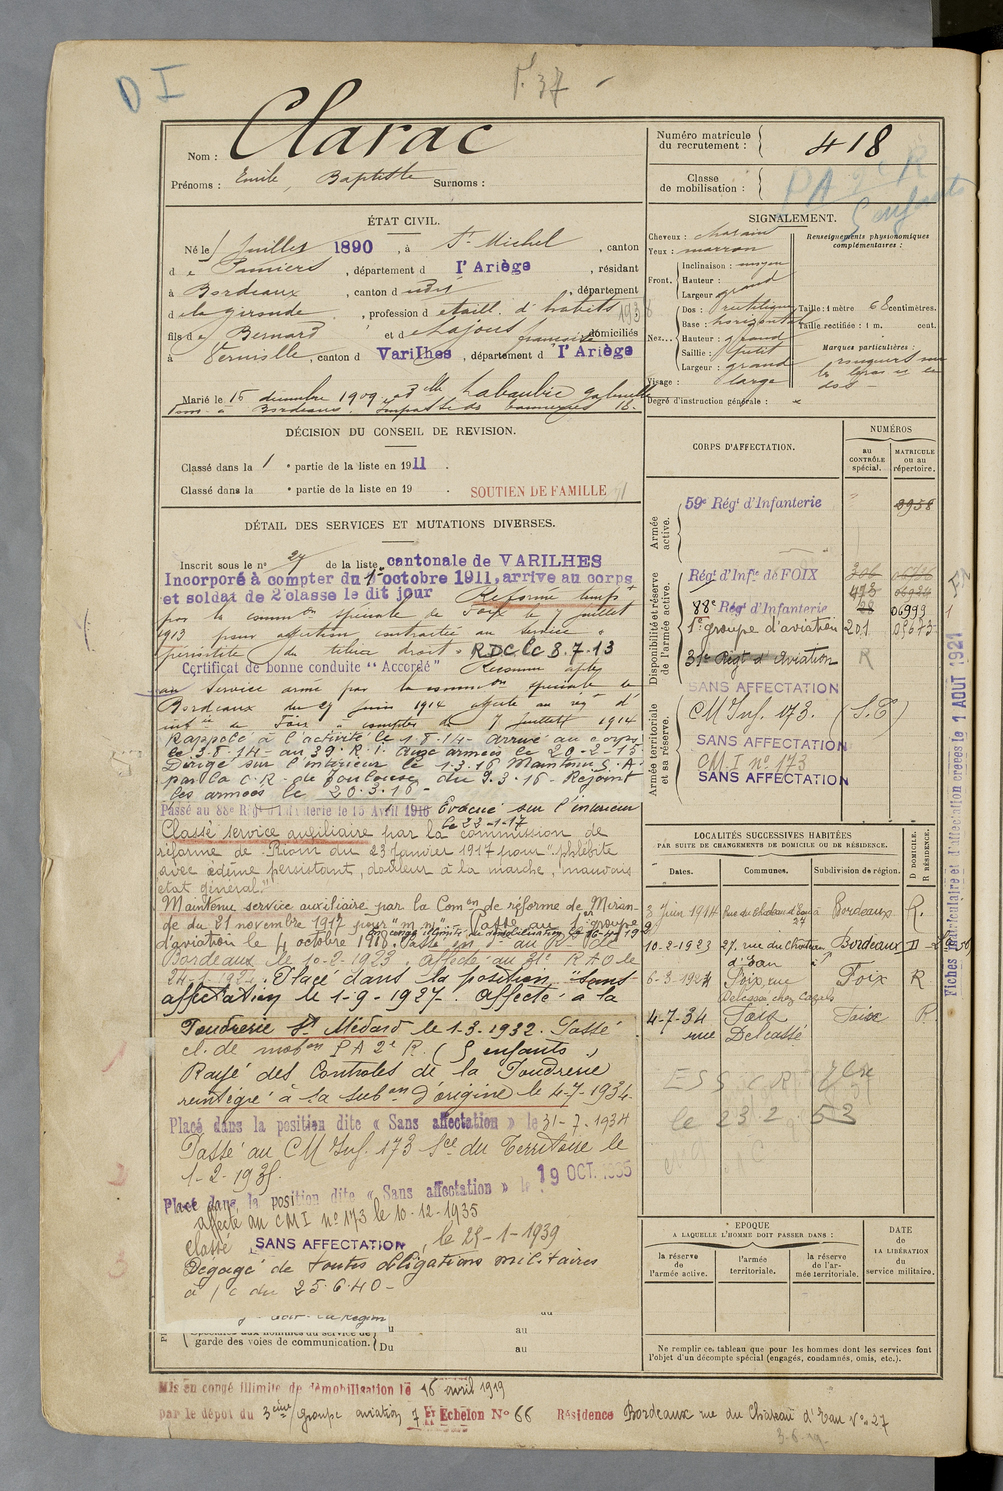 D I
P. 37
Nom : Clarac
Prénoms : Emile, Baptiste Surnoms :
Numéro matricule du recrutement : 418
Classe de mobilisation :
PA 2e R
5 enfants
ÉTAT CIVIL.
Né le Juillet 1890, à St Michel, canton
de Pamiers, département d l'Ariège, résidant
à Bordeaux, canton d udit, département
d e la gironde, profession d e taill. d'habits
fils de Bernard et d e Lajous françoise domiciliés
à Verniolle, canton d Varilhes, département d l'Ariège
Marié le 15 décembre 1909 à Mlle Labaubie gabrielle
SIGNALEMENT.
Cheveux : chatain
Yeux : marron
Front. Inclinaison : moyen
Hauteur : grand
Largeur : grand
Nez... Dos : rectiligne
Base : horizontal
Hauteur : grand
Saillie : petit
Largeur : grand
Visage : large
Degré d'instruction générale :
Renseignements physionomiques complémentaires :
Taille : 1 mètre 68 centimètres.
Taille rectifiée : 1 m. cent.
Marques particulières :
DÉCISION DU CONSEIL DE REVISION.
Classé dans la 1e partie de la liste en 1911.
Classé dans la e partie de la liste en 19 .
SOUTIEN DE FAMILLE
DÉTAIL DES SERVICES ET MUTATIONS DIVERSES.
Inscrit sous le n° 27 de la liste cantonale de VARILHES
Incorporé à compter du 1er octobre 1911, arrive au corps
et soldat de 2e classe le dit jour Réformé tempre
par la common spéciale de Foix le 7 juillet
1913 pour affection contractée au service
périostite du tibia droit. RDC le 8.7.13
Certificat de bonne conduite "Accordé" Reconnu apte
au service armé par la common spéciale de
Bordeaux du 29 juin 1914 affecté au régt d'
infie de Foix à compter du 7 juillet 1914
Rappelé à l'activité le 1.8.14- Arrivé au corps
le 3.8.14- au 39. R.I. Aux armées le 20-2-15
Dirigé sur l'intérieur le 1.3.16 Maintenu S.A.
par la C.R. de Toulouse du 9.3.16- Rejoint
les armées le 20.3.16-
Passé au 88e Régt d'Infanterie le 15 Avril 1916 Evacué sur l'intérieur
le 22-1-17
Classé service auxiliaire par la commission de
réforme de Riom du 23 Janvier 1917 pour "phlébite
avec œdème persistant, douleur à la marche, mauvais
état général."
Maintenu service auxiliaire par la Comon de réforme de Miran-
de du 21 novembre 1917 pour "m.m". Passé au 1er groupe
d'aviation le 4 octobre 1918.
Bordeaux le 10-2-1923. Affecté au 31e RAO le
24-1-1924. Placé dans la position "sans
affectation le 1-9-1927. Affecté à la
Poudrerie St Médard le 1.3.1932. Passé
cl. de mobon PA 2e R. (5 enfants)
Rayé des Controles de la Poudrerie
réintégré à la subon d'origine le 4-7-1934.
Placé dans la position dite « Sans affectation » le 31-7-1934
Passé au CM Inf. 173 Sce du Territoire le
1-2-1935.
Placé dans la position dite « Sans affectation » le 19 OCT. 1935
affecté au CMI n° 173 le 10-12-1935
classé SANS AFFECTATION, le 25-1-1939
Dégagé de toutes obligations militaires
à /c du 25.6.40-
garde des voies de communication. Du au
CORPS D'AFFECTATION.
NUMÉROS
au CONTRÔLE spécial.
MATRICULE ou au répertoire.
Armée active.
59e Régt d'Infanterie 3958
Disponibilité et réserve de l'armée active.
Régt d'Infie de FOIX
88e Régt d'Infanterie 28 06999
1er groupe d'aviation 201 05673
31e Régt d'Aviation R
SANS AFFECTATION
Armée territoriale et sa réserve.
CM Inf. 173. (S.T)
SANS AFFECTATION
CM.I n° 173
SANS AFFECTATION
LOCALITÉS SUCCESSIVES HABITÉES
PAR SUITE DE CHANGEMENTS DE DOMICILE OU DE RÉSIDENCE.
Dates. Communes. Subdivision de région. D DOMICILE. R RÉSIDENCE.
3 Juin 1914 Rue du Chateau d'Eau à 27 Bordeaux R.
10-2-1923 27, rue du Chateau d'Eau Bordeaux D
6-3-1924 Foix, rue Delcassé chez Cazals Foix R
4-7-34 Foix rue Delcassé Foix R
le 23 2 53
EPOQUE
A LAQUELLE L'HOMME DOIT PASSER DANS :
la réserve de l'armée active.
l'armée territoriale.
la réserve de l'armée territoriale.
DATE de LA LIBÉRATION du service militaire.
Ne remplir ce tableau que pour les hommes dont les services font
l'objet d'un décompte spécial (engagés, condamnés, omis, etc.).
Fiches matriculaire et d'affectation créées le 1 AOUT 1921
1
2
3
Mis en congé illimité de démobilisation le 16 avril 1919
par le dépôt du 3ème groupe aviation 7e Echelon N° 66 Résidence Bordeaux rue du Château d'Eau N° 27